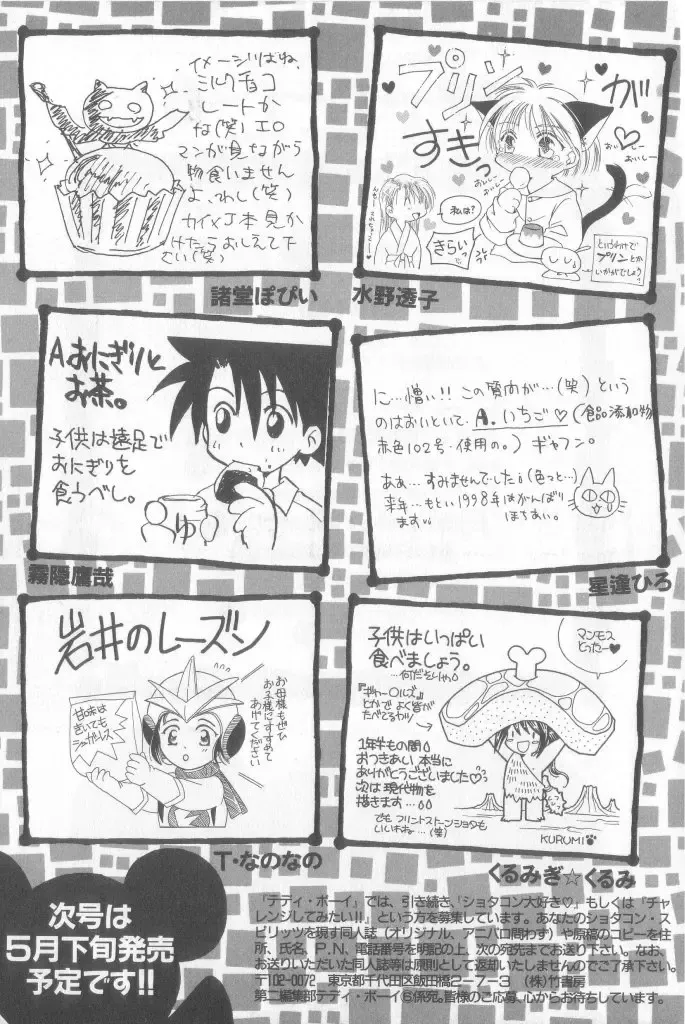 イメージいばね、
ミルクチョコ
レートか
な(笑) エロ
マンガ見ながら
物食いません
よ、わし(笑)
カイ×J本見か
けたらおしえて下
さい(笑)
諸堂ぽぴい
プリンが
すきっ
おいしー
おいしー
おいしー
おいしー
私は?
きらいっ
というわけで
プリンとか
いかがでしょう?
水野透子
Aおにぎりと
お茶。
子供は遠足で
おにぎりを
食うべし。
ゆ
霧隠鷹哉
に…憎い!! この質問が…(笑)という
のはおいといて、A.いちご♡(食品添加物
赤色102号・使用の。)ギャフン。
ああ…すみませんでした(色っと…)
来年…もとい1998年はがんばり
ます
ほちあい。
星逢ひろ
岩井のレーズン
甘味は
きいても
シュガーレス
お母様もぜひ
お子様にすすめて
あげてください
T・なのなの
子供はいっぱい
食べましょう。
…何だそりゃ
『ギャー〇ルズ』
とかで よく皆が
たべてるヤツ
マンモス
とったー♥
1年半もの間
おつきあい 本当に
ありがとうございました♡
次は現代物を
描きます…
でも フリントストーンショタも
いいわね〜(笑)
KURUMI
くるみぎ☆くるみ
次号は
5月下旬発売
予定です!!
「テディ・ボーイ」では、引き続き、「ショタコン大好き♡」もしくは「チャ
レンジしてみたい!!」という方を募集しています。あなたのショタコン・ス
ピリッツを現す同人誌(オリジナル、アニパロ問わず)や原稿のコピーを住
所、氏名、P.N、電話番号を明記の上、次の宛先までお送り下さい。なお、
お送りいただいた同人誌等は原則として返却いたしませんのでご了承下さい。
〒102-0072 東京都千代田区飯田橋2-7-3 (株)竹書房
第二編集部テディ・ボーイ⑥係宛。皆様のご応募、心からお待ちしています。